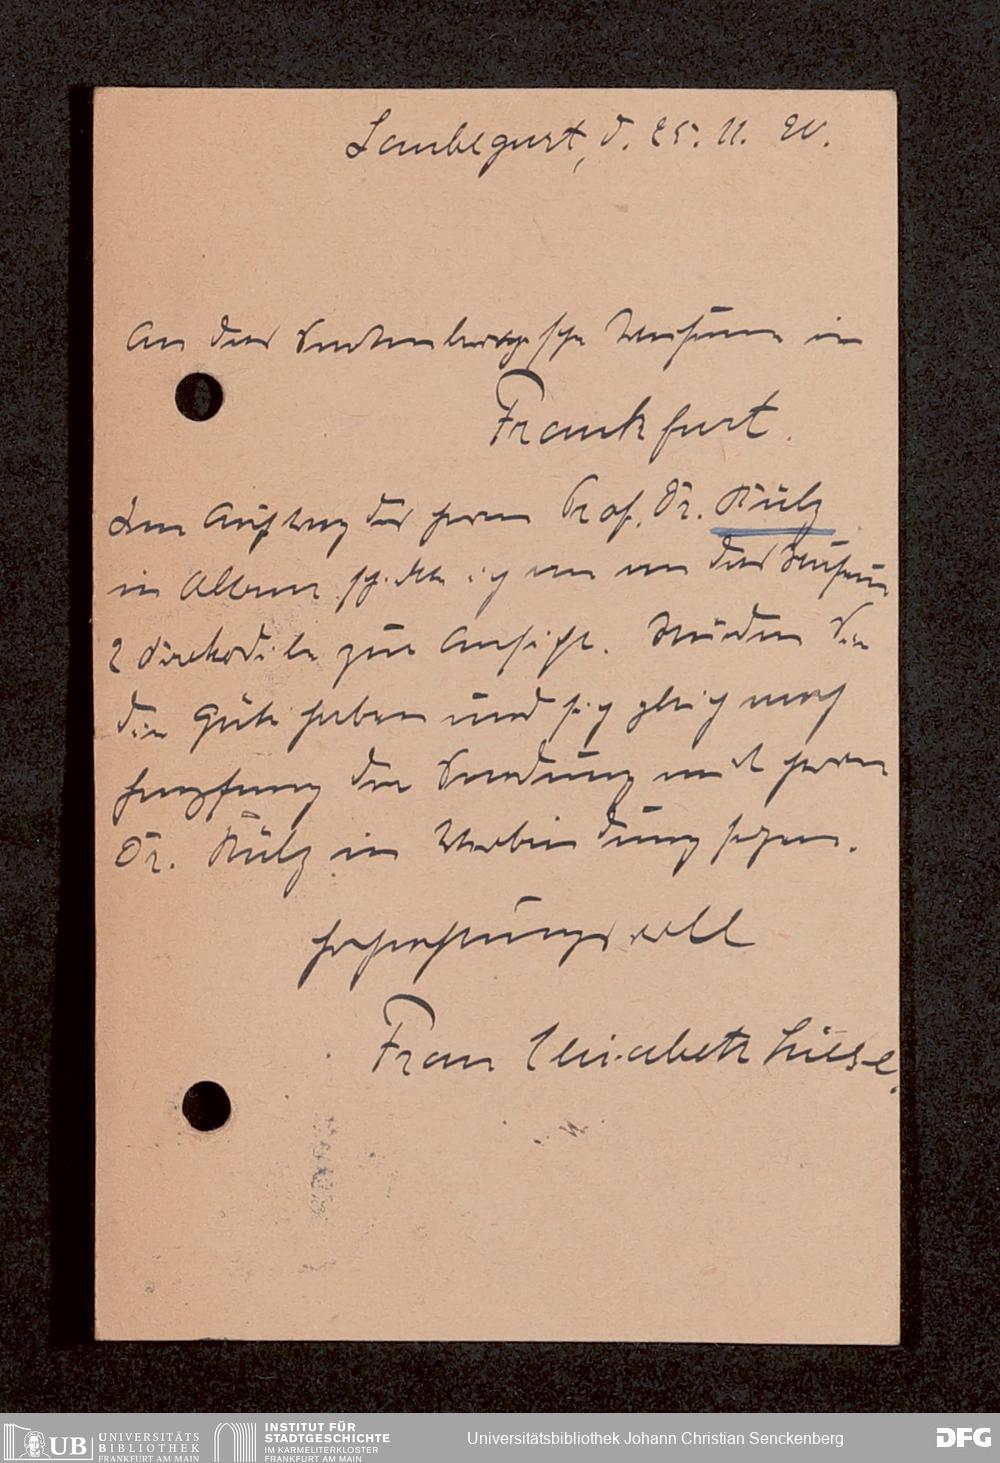 Laubegast, d. 25. 11. 20.
An das Senckenbergische Museum in
Frankfurt.
Im Auftrag des Herrn Prof. Dr. Külz
in Altona schickte ich an das Museum
2 Krokodile zur Ansicht. Würden Sie
die Güte haben und sich gleich nach
Empfang der Sendung mit Herrn
Dr. Külz in Verbindung setzen.
Hochachtungsvoll
Frau Elisabeth
UB UNIVERSITÄTS
BIBLIOTHEK
FRANKFURT AM MAIN
INSTITUT FÜR
STADTGESCHICHTE
IM KARMELITERKLOSTER
FRANKFURT AM MAIN
Universitätsbibliothek Johann Christian Senckenberg
DFG